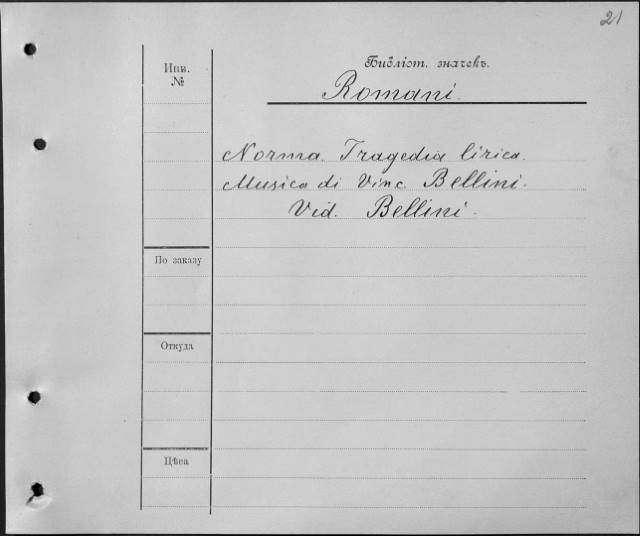 21
Инв.
№
Библіот. значекъ.
Romani.
Norma. Tragedia lirica.
Musica di Vinc. Bellini.
Vid. Bellini.
По заказу
Откуда
Цѣна